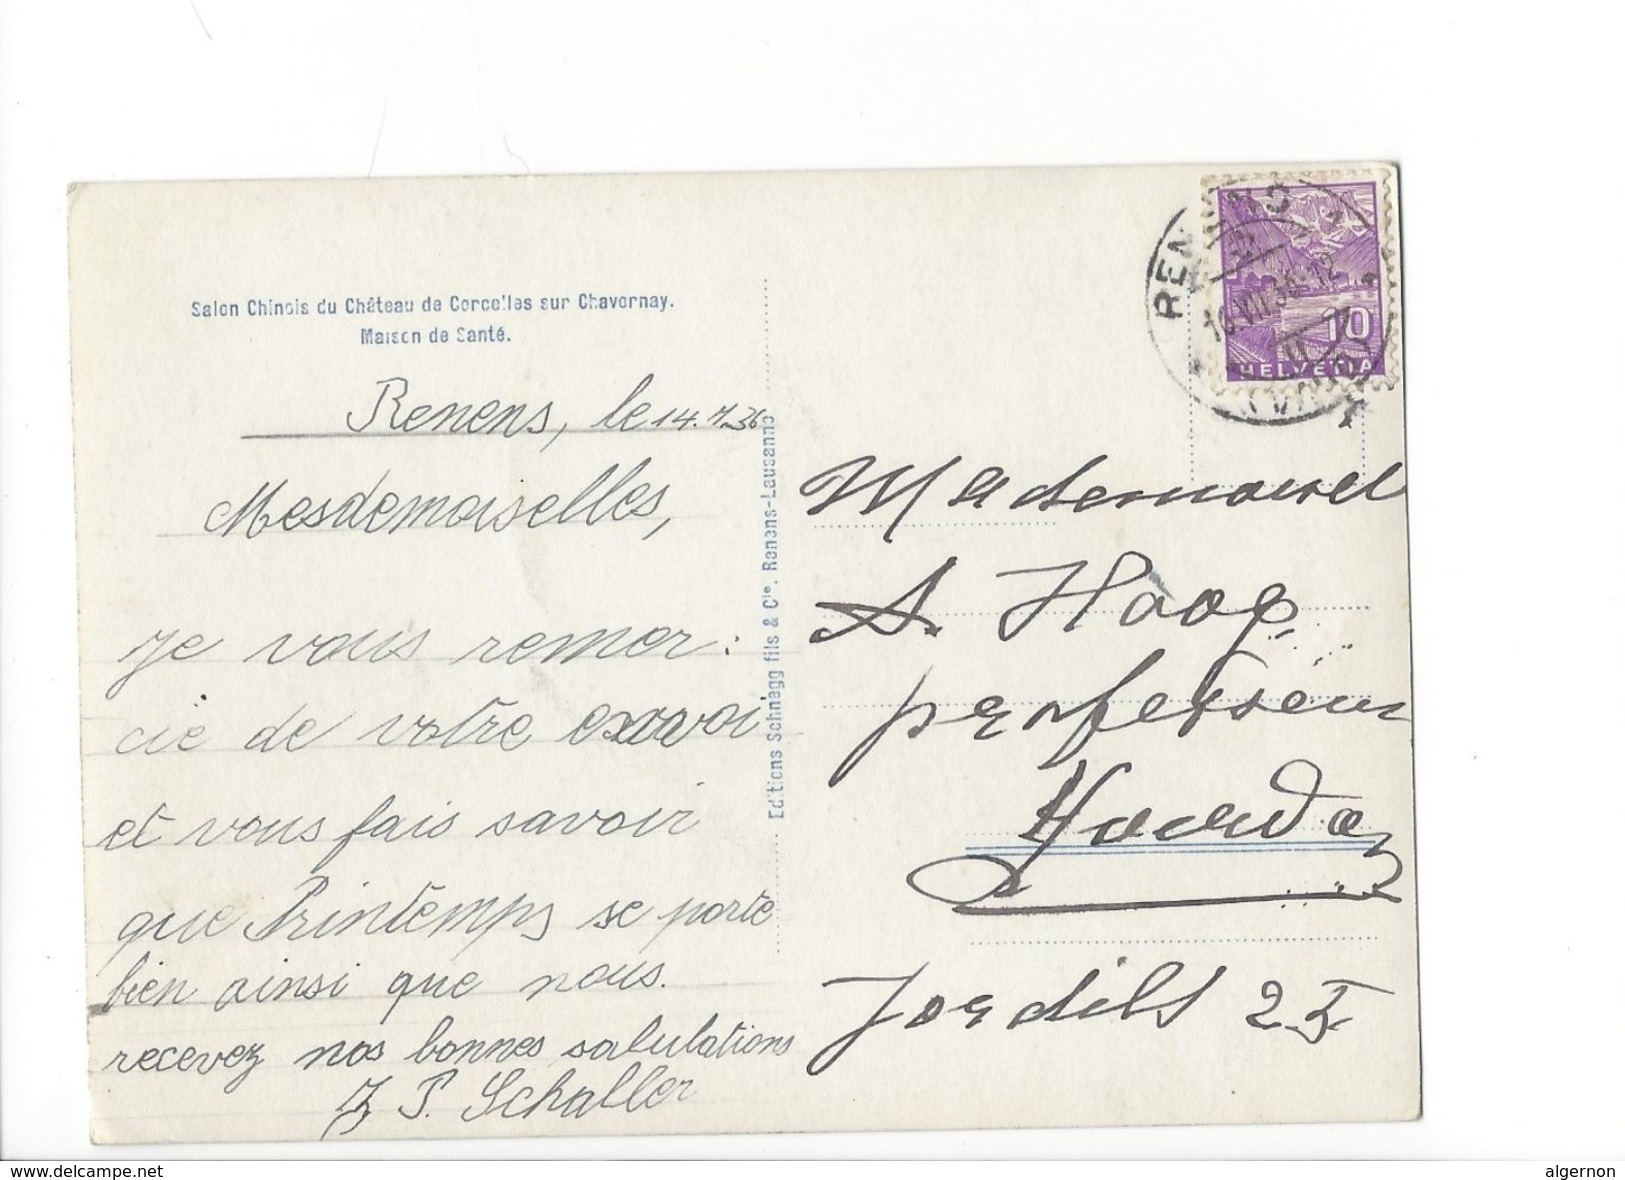 Salon Chinois du Château de Corcelles sur Chavornay.
Maison de Santé.
Renens, le 14.7.36
Mesdemoiselles,
Je vous remer:
cie de votre envoi
et vous fais savoir
que Printemps se porte
bien ainsi que nous.
recevez nos bonnes salulations
P. Schaller
Editions Schnegg fils & Cie. Renens-Lausanne
RENENS 1
VII.36.-12
(VAUD)
10
HELVETIA
Mademoisel
A. Haag
professeur
Yverdon
Jordils
delcampe.net
algernon